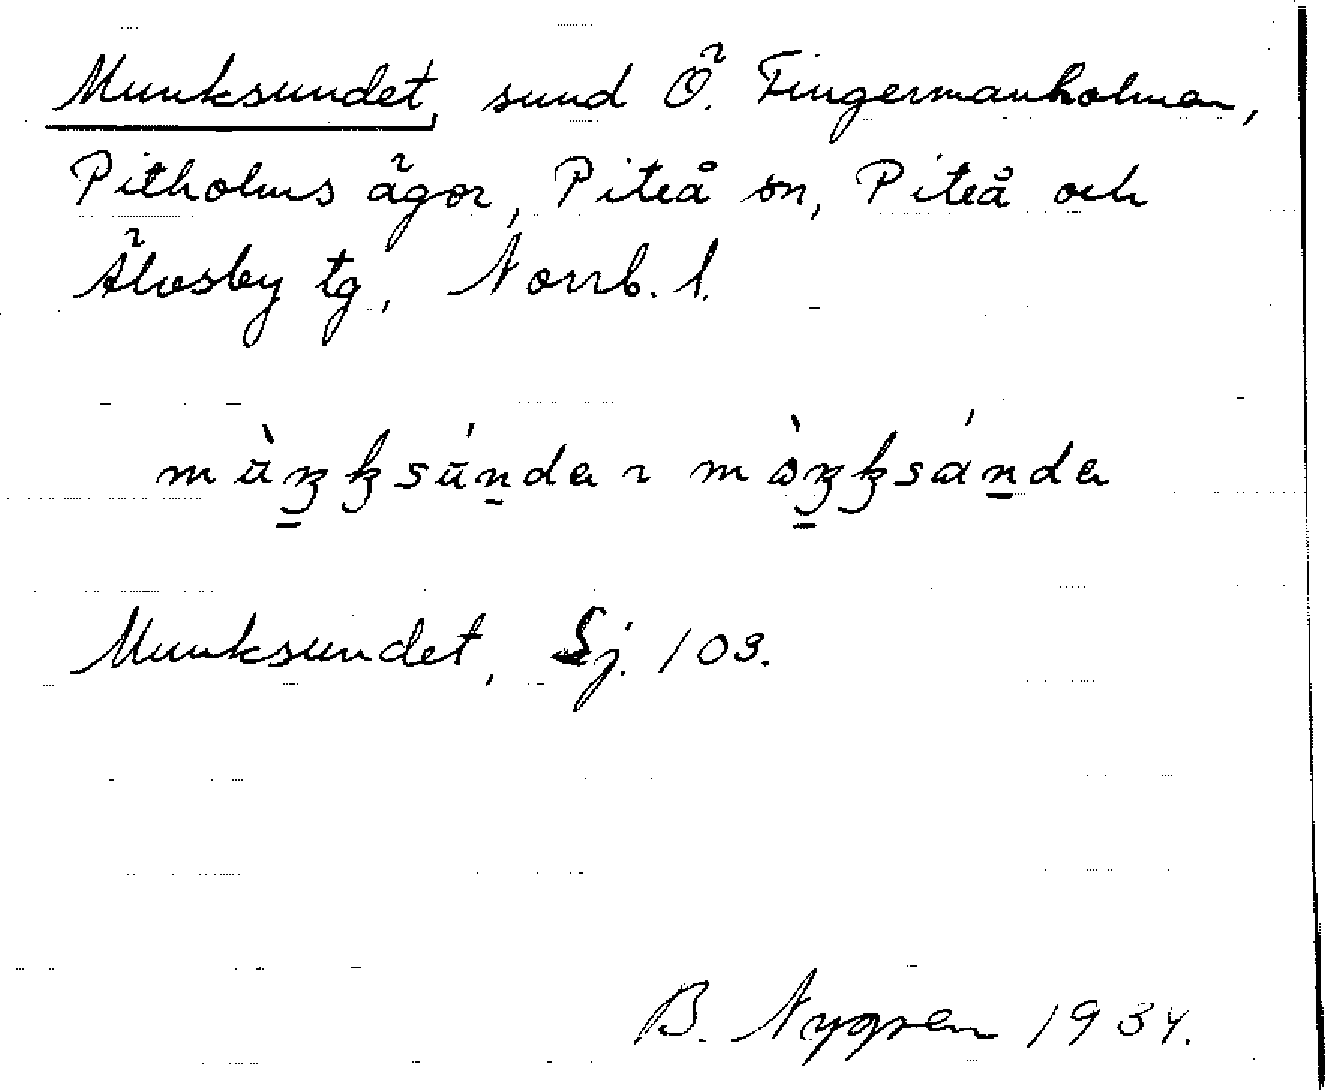 Munksundet, sund Ö. Fingermanholmen,
Pitholms ägor, Piteå sn, Piteå och
Älvsby tg, Norrb. l.
Munksundet, Sj. 103.
B. Nygren 1934.